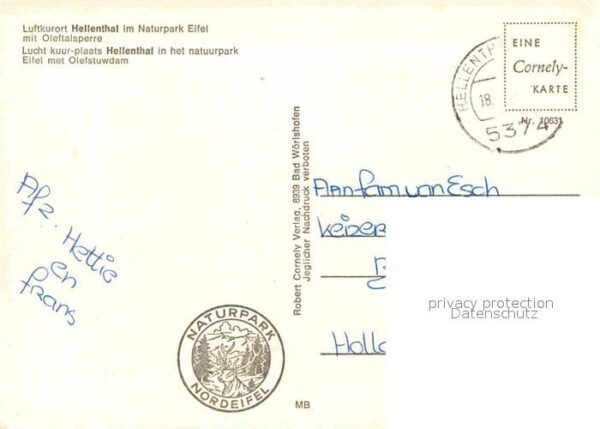 Luftkurort Hellenthal im Naturpark Eifel
mit Oleftalsperre
Lucht kuur-plaats Hellenthal in het natuurpark
Eifel met Olefstuwdam
EINE
Cornely-
KARTE
Nr. 10631
HELLENTH
18.
5374
Robert Cornely Verlag, 8939 Bad Wörishofen
Jeglicher Nachdruck verboten
Afz. Hettie
en
frans
Aan fam van Esch
Keizer
Holla
privacy protection
Datenschutz
NATURPARK
NORDEIFEL
MB